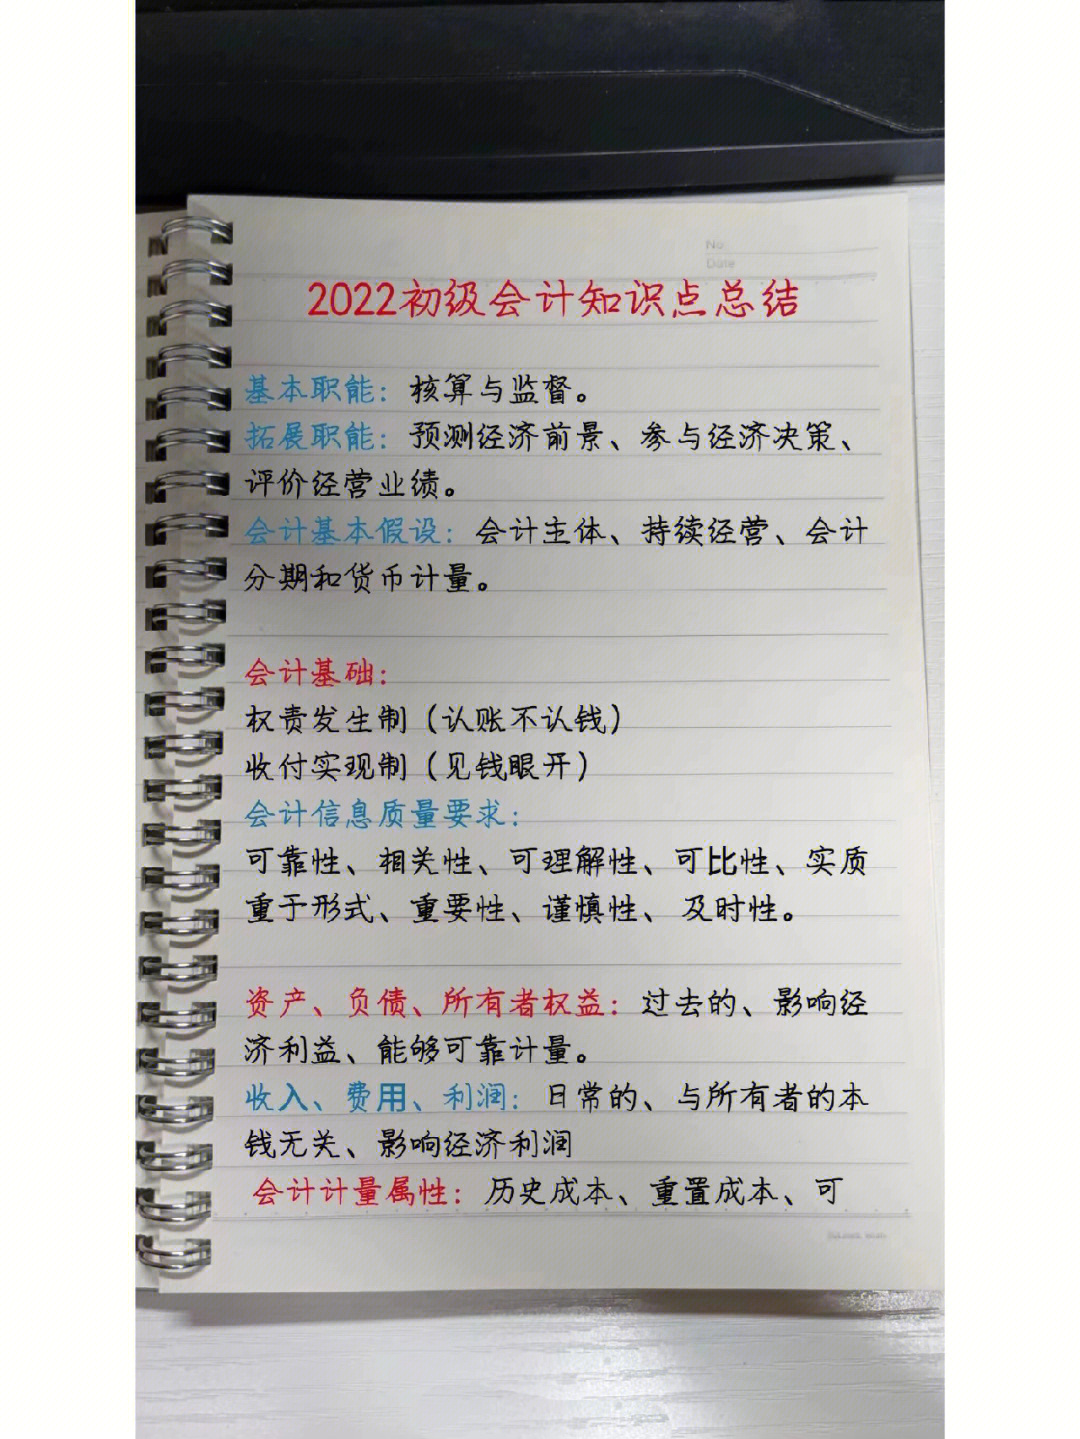 No
Date
2022初级会计知识点总结
基本职能：核算与监督。
拓展职能：预测经济前景、参与经济决策、
评价经营业绩。
会计基本假设：会计主体、持续经营、会计
分期和货币计量。
会计基础：
权责发生制（认账不认钱）
收付实现制（见钱眼开）
会计信息质量要求：
可靠性、相关性、可理解性、可比性、实质
重于形式、重要性、谨慎性、及时性。
资产、负债、所有者权益：过去的、影响经
济利益、能够可靠计量。
收入、费用、利润：日常的、与所有者的本
钱无关、影响经济利润
会计计量属性：历史成本、重置成本、可